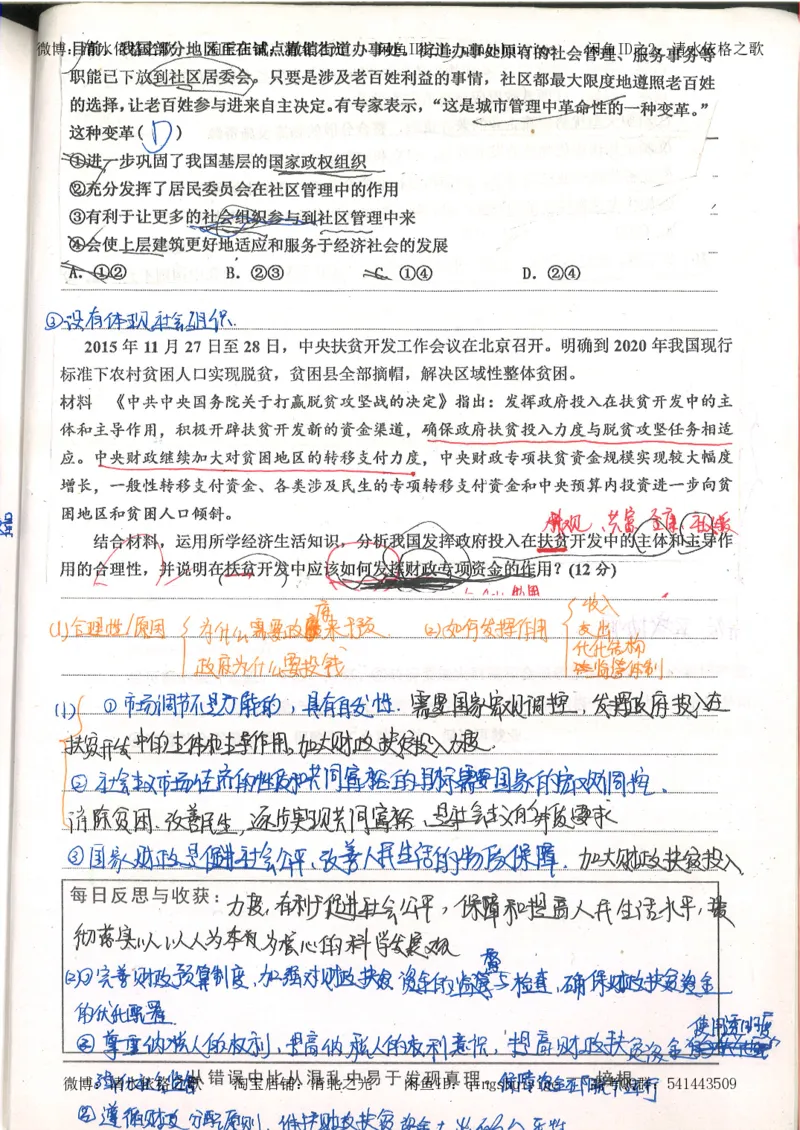 目前，我国部分地区正在试点撤销街道办事处，街道办事处原有的社会管理、服务事务等
职能已下放到社区居委会。只要是涉及老百姓利益的事情，社区都最大限度地遵照老百姓
的选择，让老百姓参与进来自主决定。有专家表示，“这是城市管理中革命性的一种变革。”
这种变革（ D ）
①进一步巩固了我国基层的国家政权组织
②充分发挥了居民委员会在社区管理中的作用
③有利于让更多的社会组织参与到社区管理中来
④会使上层建筑更好地适应和服务于经济社会的发展
A．①② B．②③ C．①④ D．②④
③没有体现社会组织.
2015 年 11 月 27 日至 28 日，中央扶贫开发工作会议在北京召开。明确到 2020 年我国现行
标准下农村贫困人口实现脱贫，贫困县全部摘帽，解决区域性整体贫困。
材料 《中共中央国务院关于打赢脱贫攻坚战的决定》指出：发挥政府投入在扶贫开发中的主
体和主导作用，积极开辟扶贫开发新的资金渠道，确保政府扶贫投入力度与脱贫攻坚任务相适
应。中央财政继续加大对贫困地区的转移支付力度，中央财政专项扶贫资金规模实现较大幅度
增长，一般性转移支付资金、各类涉及民生的专项转移支付资金和中央预算内投资进一步向贫
困地区和贫困人口倾斜。
结合材料，运用所学经济生活知识，分析我国发挥政府投入在扶贫开发中的主体和主导作
用的合理性，并说明在扶贫开发中应该如何发挥财政专项资金的作用？(12 分)
(1)合理性/原因 为什么需要政府来干预 (2)如何发挥作用 收入
支出
政府为什么要投钱 优化结构
监督体制
(1) ①市场调节不是万能的，具有自发性. 需要国家宏观调控，发挥政府投入在
扶贫开发中的主体和主导作用。加大财政扶贫投入力度.
②社会主义市场经济的性质和共同富裕的目标需要国家的宏观调控.
消除贫困、改善民生，逐步实现共同富裕，是社会主义的本质要求
③国家财政是促进社会公平、改善人民生活的物质保障. 加大财政扶贫投入
每日反思与收获：力度，有利于促进社会公平，保障和提高人民生活水平，
彻落实以人为本为核心的科学发展观
(2)①完善财政预算制度，加强对财政扶贫资金的监督与检查，确保财政扶贫资金
的优化配置.
②尊重纳税人的权利，提高纳税人的权利意识，提高财政扶贫资金使用透明度
从错误中比从混乱中易于发现真理. 保障资金在阳光下运行
③遵循财政分配原则，维护财政扶贫资金